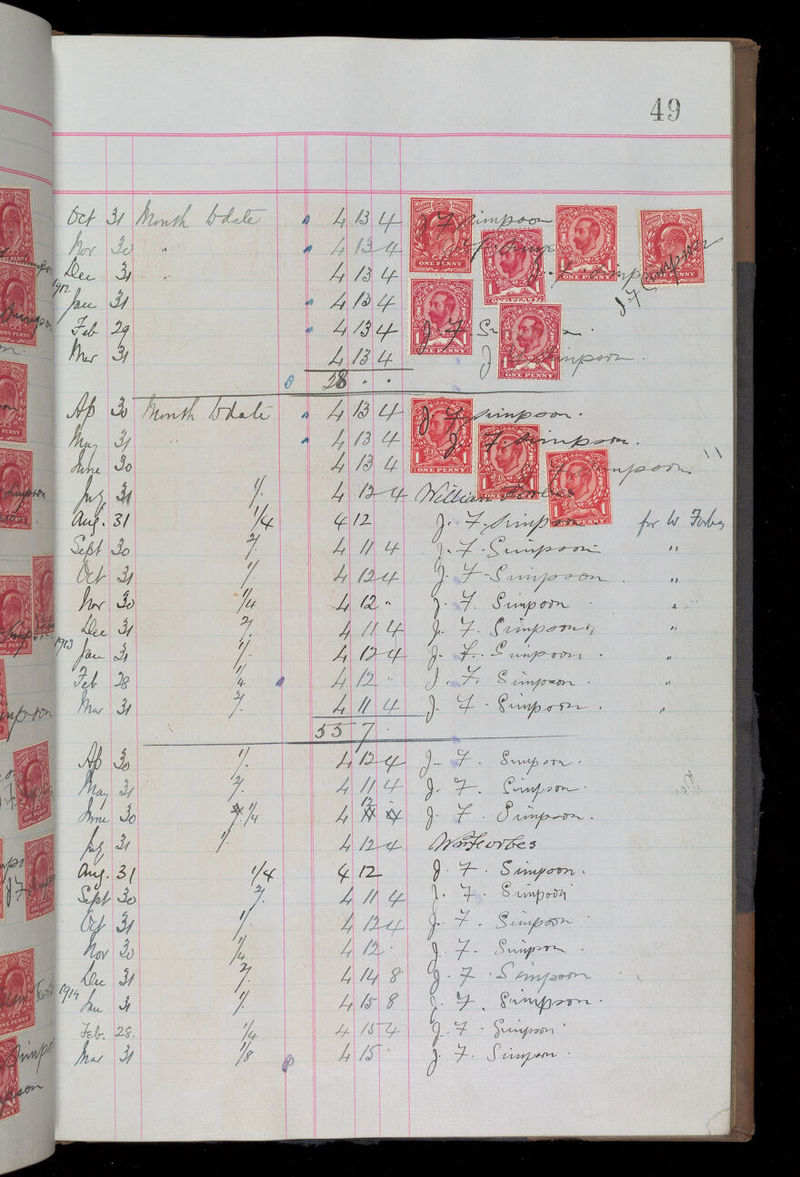 49
Oct 31 Month to date " 4 13 4 J F Simpson
Nov 30 " " 4 13 4 J F Simpson
Dec 31 " 4 13 4 J. F Simpson
1912 Jan 31 " 4 13 4 J. F Simpson
Feb 29 " 4 13 4 J F S
Mar 31 4 13 4 J F Simpson.
28 " "
Ap 30 Month to date " 4 13 4 J F Simpson.
May 31 " 4 13 4 J. F. Simpson.
June 30 4 13 4 F Simpson "
July 31 1/. 4 12 4 William Forbes
Aug. 31 1/4 4 12 J. F. Simpson for W Forbes
Sept 30 2/. 4 11 4 J. F. Simpson "
Oct 31 1/. 4 12 4 J. F. Simpson. "
Nov 30 1/4 4 12 " J. F. Simpson "
Dec 31 2/. 4 11 4 J. F. Simpson "
1913 Jan 31 1/. 4 12 4 J. F. Simpson. "
Feb 28 1/4 4 12 " J. F. Simpson. "
Mar 31 2/. 4 11 4 J. F. Simpson. "
55 7 "
Ap 30 1/. 4 12 4 J. F. Simpson.
May 31 2/. 4 11 4 J. F. Simpson.
June 30 1/4 4 12 J. F. Simpson.
July 31 1/. 4 12 4 Wm Forbes
Aug. 31 1/4 4 12 J. F. Simpson.
Sept 30 2/. 4 11 4 J. F. Simpson
Oct 31 1/. 4 12 4 J. F. Simpson
Nov 30 1/4 4 12 " J. F. Simpson
Dec 31 2/. 4 14 8 J. F. Simpson
1914 Jan 31 1/. 4 15 8 J. F. Simpson.
Feb. 28. 1/4 4 15 4 J. F. Simpson
Mar 31 1/8 4 15 " J. F. Simpson.
ONE PENNY
ONE PENNY
ONE PENNY
ONE PENNY
ONE PENNY
ONE PENNY
ONE PENNY
ONE PENNY
ONE PENNY